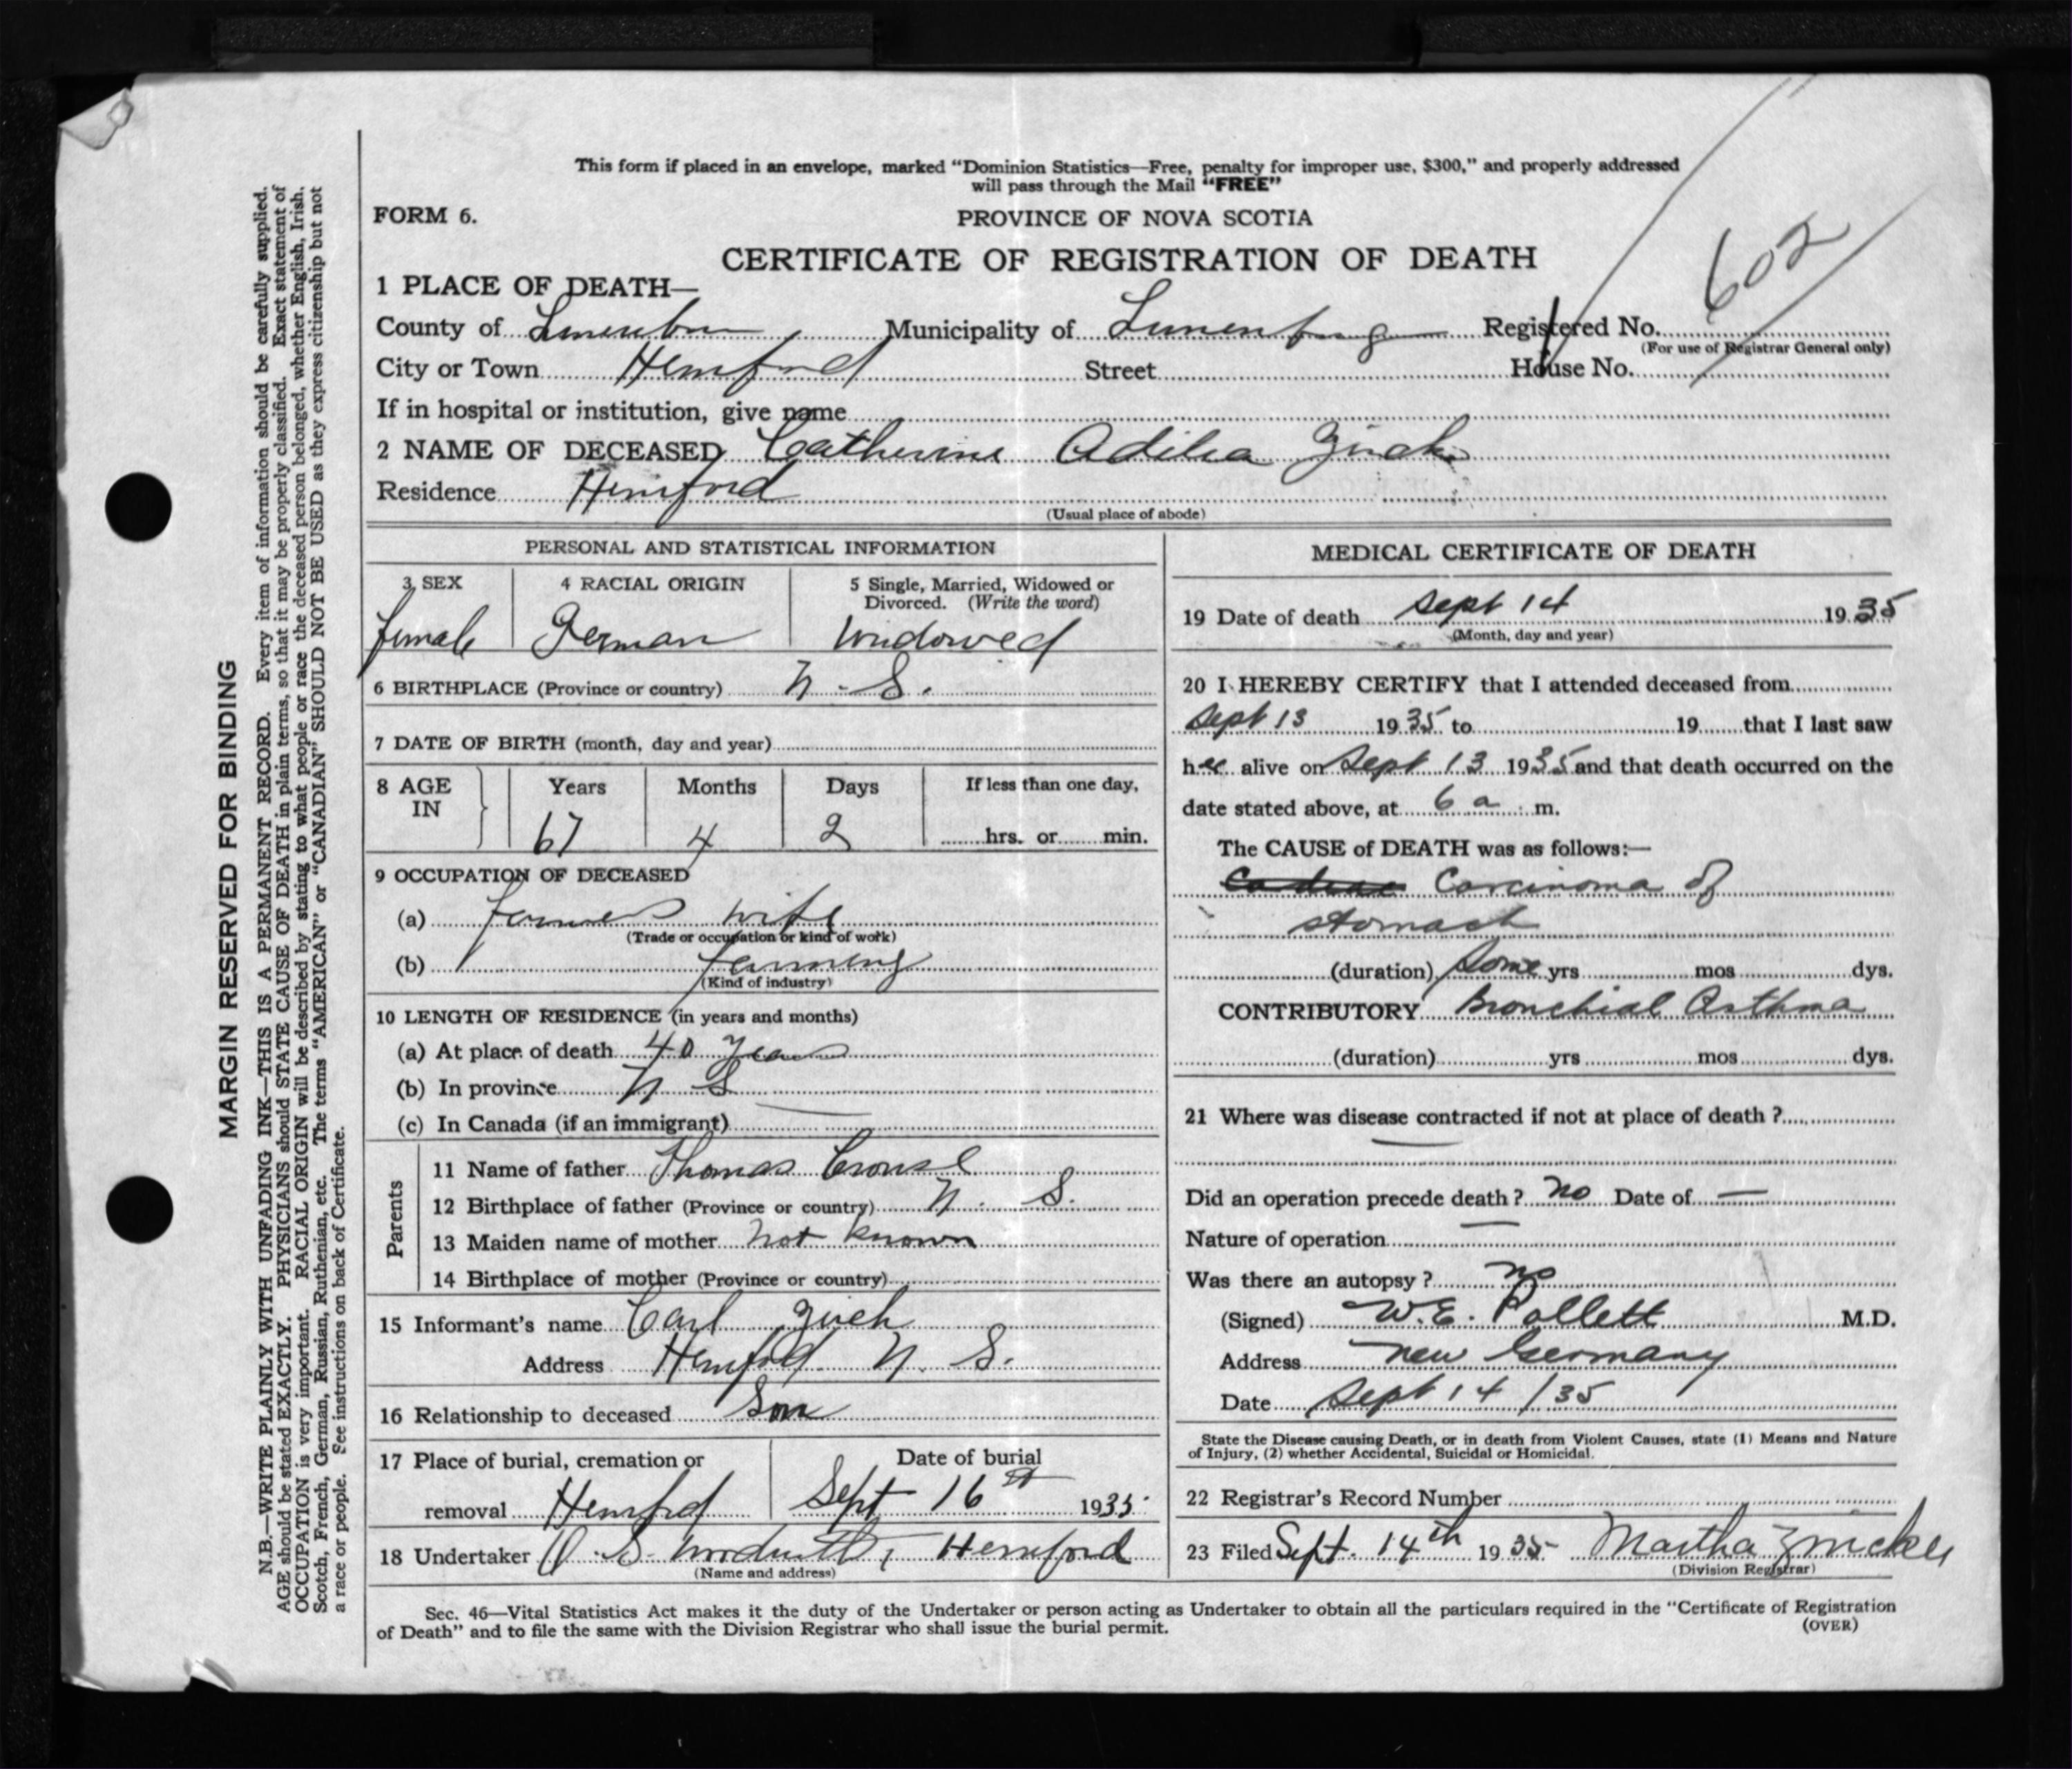 This form if placed in an envelope, marked “Dominion Statistics—Free, penalty for improper use, $300,” and properly addressed
will pass through the Mail “FREE”
FORM 6.
PROVINCE OF NOVA SCOTIA
CERTIFICATE OF REGISTRATION OF DEATH
602
1 PLACE OF DEATH—
County of Lunenburg Municipality of Lunenburg Registered No.
(For use of Registrar General only)
City or Town Hemford Street House No.
If in hospital or institution, give name
2 NAME OF DECEASED Catherine Adilia Zinck
Residence Hemford
(Usual place of abode)
PERSONAL AND STATISTICAL INFORMATION
3 SEX
female
4 RACIAL ORIGIN
German
5 Single, Married, Widowed or
Divorced. (Write the word)
Widowed
6 BIRTHPLACE (Province or country) N. S.
7 DATE OF BIRTH (month, day and year)
8 AGE IN
Years Months Days If less than one day,
67 4 2 hrs. or min.
9 OCCUPATION OF DECEASED
(a) farmers wife
(Trade or occupation or kind of work)
(b) farming
(Kind of industry)
10 LENGTH OF RESIDENCE (in years and months)
(a) At place of death 40 years
(b) In province N S
(c) In Canada (if an immigrant) —
Parents
11 Name of father Thomas Crouse
12 Birthplace of father (Province or country) N. S.
13 Maiden name of mother not known
14 Birthplace of mother (Province or country)
15 Informant's name Carl Zinck
Address Hemford N. S.
16 Relationship to deceased Son
17 Place of burial, cremation or
removal Hemford
Date of burial
Sept 16st 1935
18 Undertaker O. S. Hemford
(Name and address)
MEDICAL CERTIFICATE OF DEATH
19 Date of death Sept 14 1935
(Month, day and year)
20 I HEREBY CERTIFY that I attended deceased from
Sept 13 1935 to 19 that I last saw
her alive on Sept 13 1935 and that death occurred on the
date stated above, at 6 a m.
The CAUSE of DEATH was as follows:—
Carcinoma of
stomach
(duration) Some yrs mos dys.
CONTRIBUTORY Bronchial Asthma
(duration) yrs mos dys.
21 Where was disease contracted if not at place of death ?
—
Did an operation precede death ? no Date of —
Nature of operation —
Was there an autopsy ? no
(Signed) W. E. Pollett M.D.
Address New Germany
Date Sept 14 /35
State the Disease causing Death, or in death from Violent Causes, state (1) Means and Nature
of Injury, (2) whether Accidental, Suicidal or Homicidal.
22 Registrar's Record Number
23 Filed Sept. 14th 1935 Martha Zwicker
(Division Registrar)
Sec. 46—Vital Statistics Act makes it the duty of the Undertaker or person acting as Undertaker to obtain all the particulars required in the “Certificate of Registration
of Death” and to file the same with the Division Registrar who shall issue the burial permit.
(OVER)
MARGIN RESERVED FOR BINDING
N.B.—WRITE PLAINLY WITH UNFADING INK—THIS IS A PERMANENT RECORD. Every item of information should be carefully supplied.
AGE should be stated EXACTLY. PHYSICIANS should STATE CAUSE OF DEATH in plain terms, so that it may be properly classified. Exact statement of
OCCUPATION is very important. RACIAL ORIGIN will be described by stating to what people or race the deceased person belonged, whether English, Irish,
Scotch, French, German, Russian, Ruthenian, etc. The terms “AMERICAN” or “CANADIAN” SHOULD NOT BE USED as they express citizenship but not
a race or people. See instructions on back of Certificate.